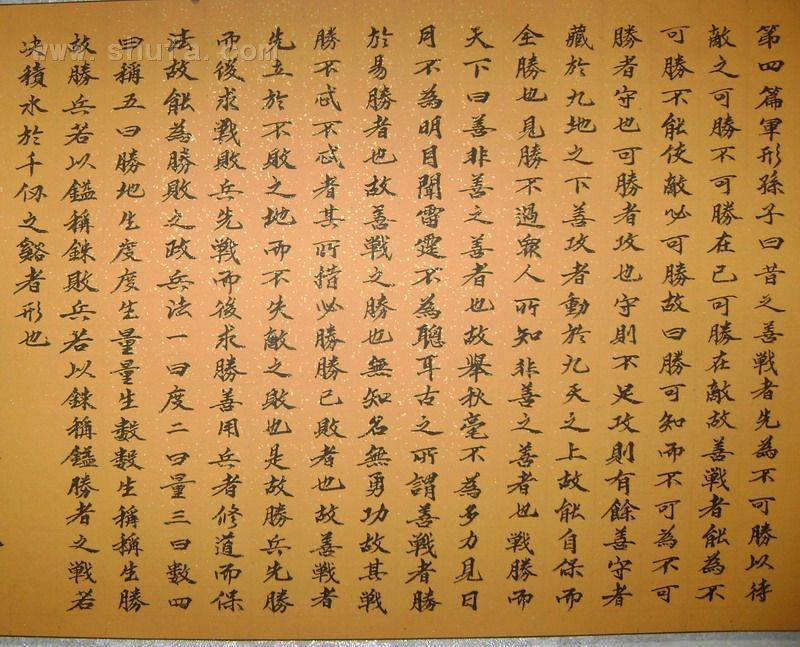 第四篇軍形孫子曰昔之善戰者先為不可勝以待
敵之可勝不可勝在己可勝在敵故善戰者能為不
可勝不能使敵必可勝故曰勝可知而不可為不可
勝者守也可勝者攻也守則不足攻則有餘善守者
藏於九地之下善攻者動於九天之上故能自保而
全勝也見勝不過眾人所知非善之善者也戰勝而
天下曰善非善之善者也故舉秋毫不為多力見日
月不為明目聞雷霆不為聰耳古之所謂善戰者勝
於易勝者也故善戰之勝也無知名無勇功故其戰
勝不忒不忒者其所措必勝勝已敗者也故善戰者
先立於不敗之地而不失敵之敗也是故勝兵先勝
而後求戰敗兵先戰而後求勝善用兵者修道而保
法故能為勝敗之政兵法一曰度二曰量三曰数四
曰稱五曰勝地生度度生量量生數數生稱稱生勝
故勝兵若以鎰稱銖敗兵若以銖稱鎰勝者之戰若
决積水於千仞之谿者形也
www.shufa.com